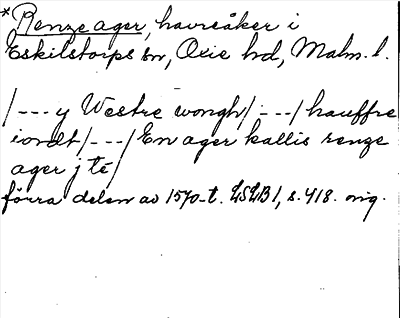 *Renze ager, havreåker i
Eskilstorps sn, Oxie hd, Malm. l.
/--- y Westre wongh/---/hauffre
iordt/---/En ager kallis renze
ager j té/
förra delen av 1570-t. LSLB 1, s. 418. orig.